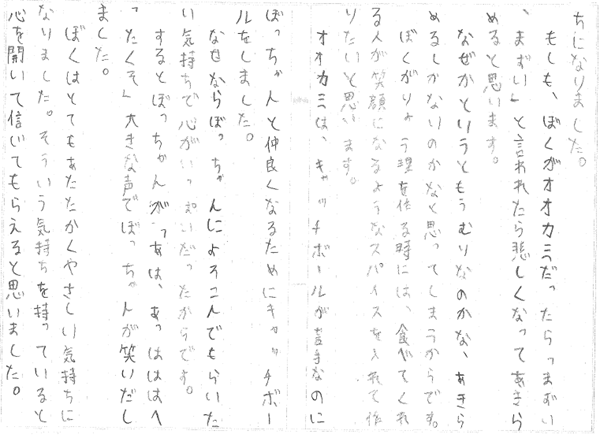 ちになりました。
もしも、ぼくがオオカミだったらっまずい
、まずい」と言われたら悲しくなってあきら
めると思います。
なぜかというともうむりなのかな、あきら
めるしかないのかなと思ってしまうからです。
ぼくがりょう理を作る時には、食べてくれ
る人が笑顔になるようなスパイスを入れて作
りたいと思います。
オオカミは、キャッチボールが苦手なのに
ぼっちゃんと仲良くなるためにキャッチボー
ルをしました。
なぜならぼっちゃんによろこんでもらいた
い気持ちで心がいっぱいだったからです。
するとぼっちゃんが「あは、あっはははへ
ったくそ」大きな声でぼっちゃんが笑いだし
ました。
ぼくはとてもあたたかくやさしい気持ちに
なりました。そういう気持ちを持っていると
心を開いて信じてもらえると思いました。